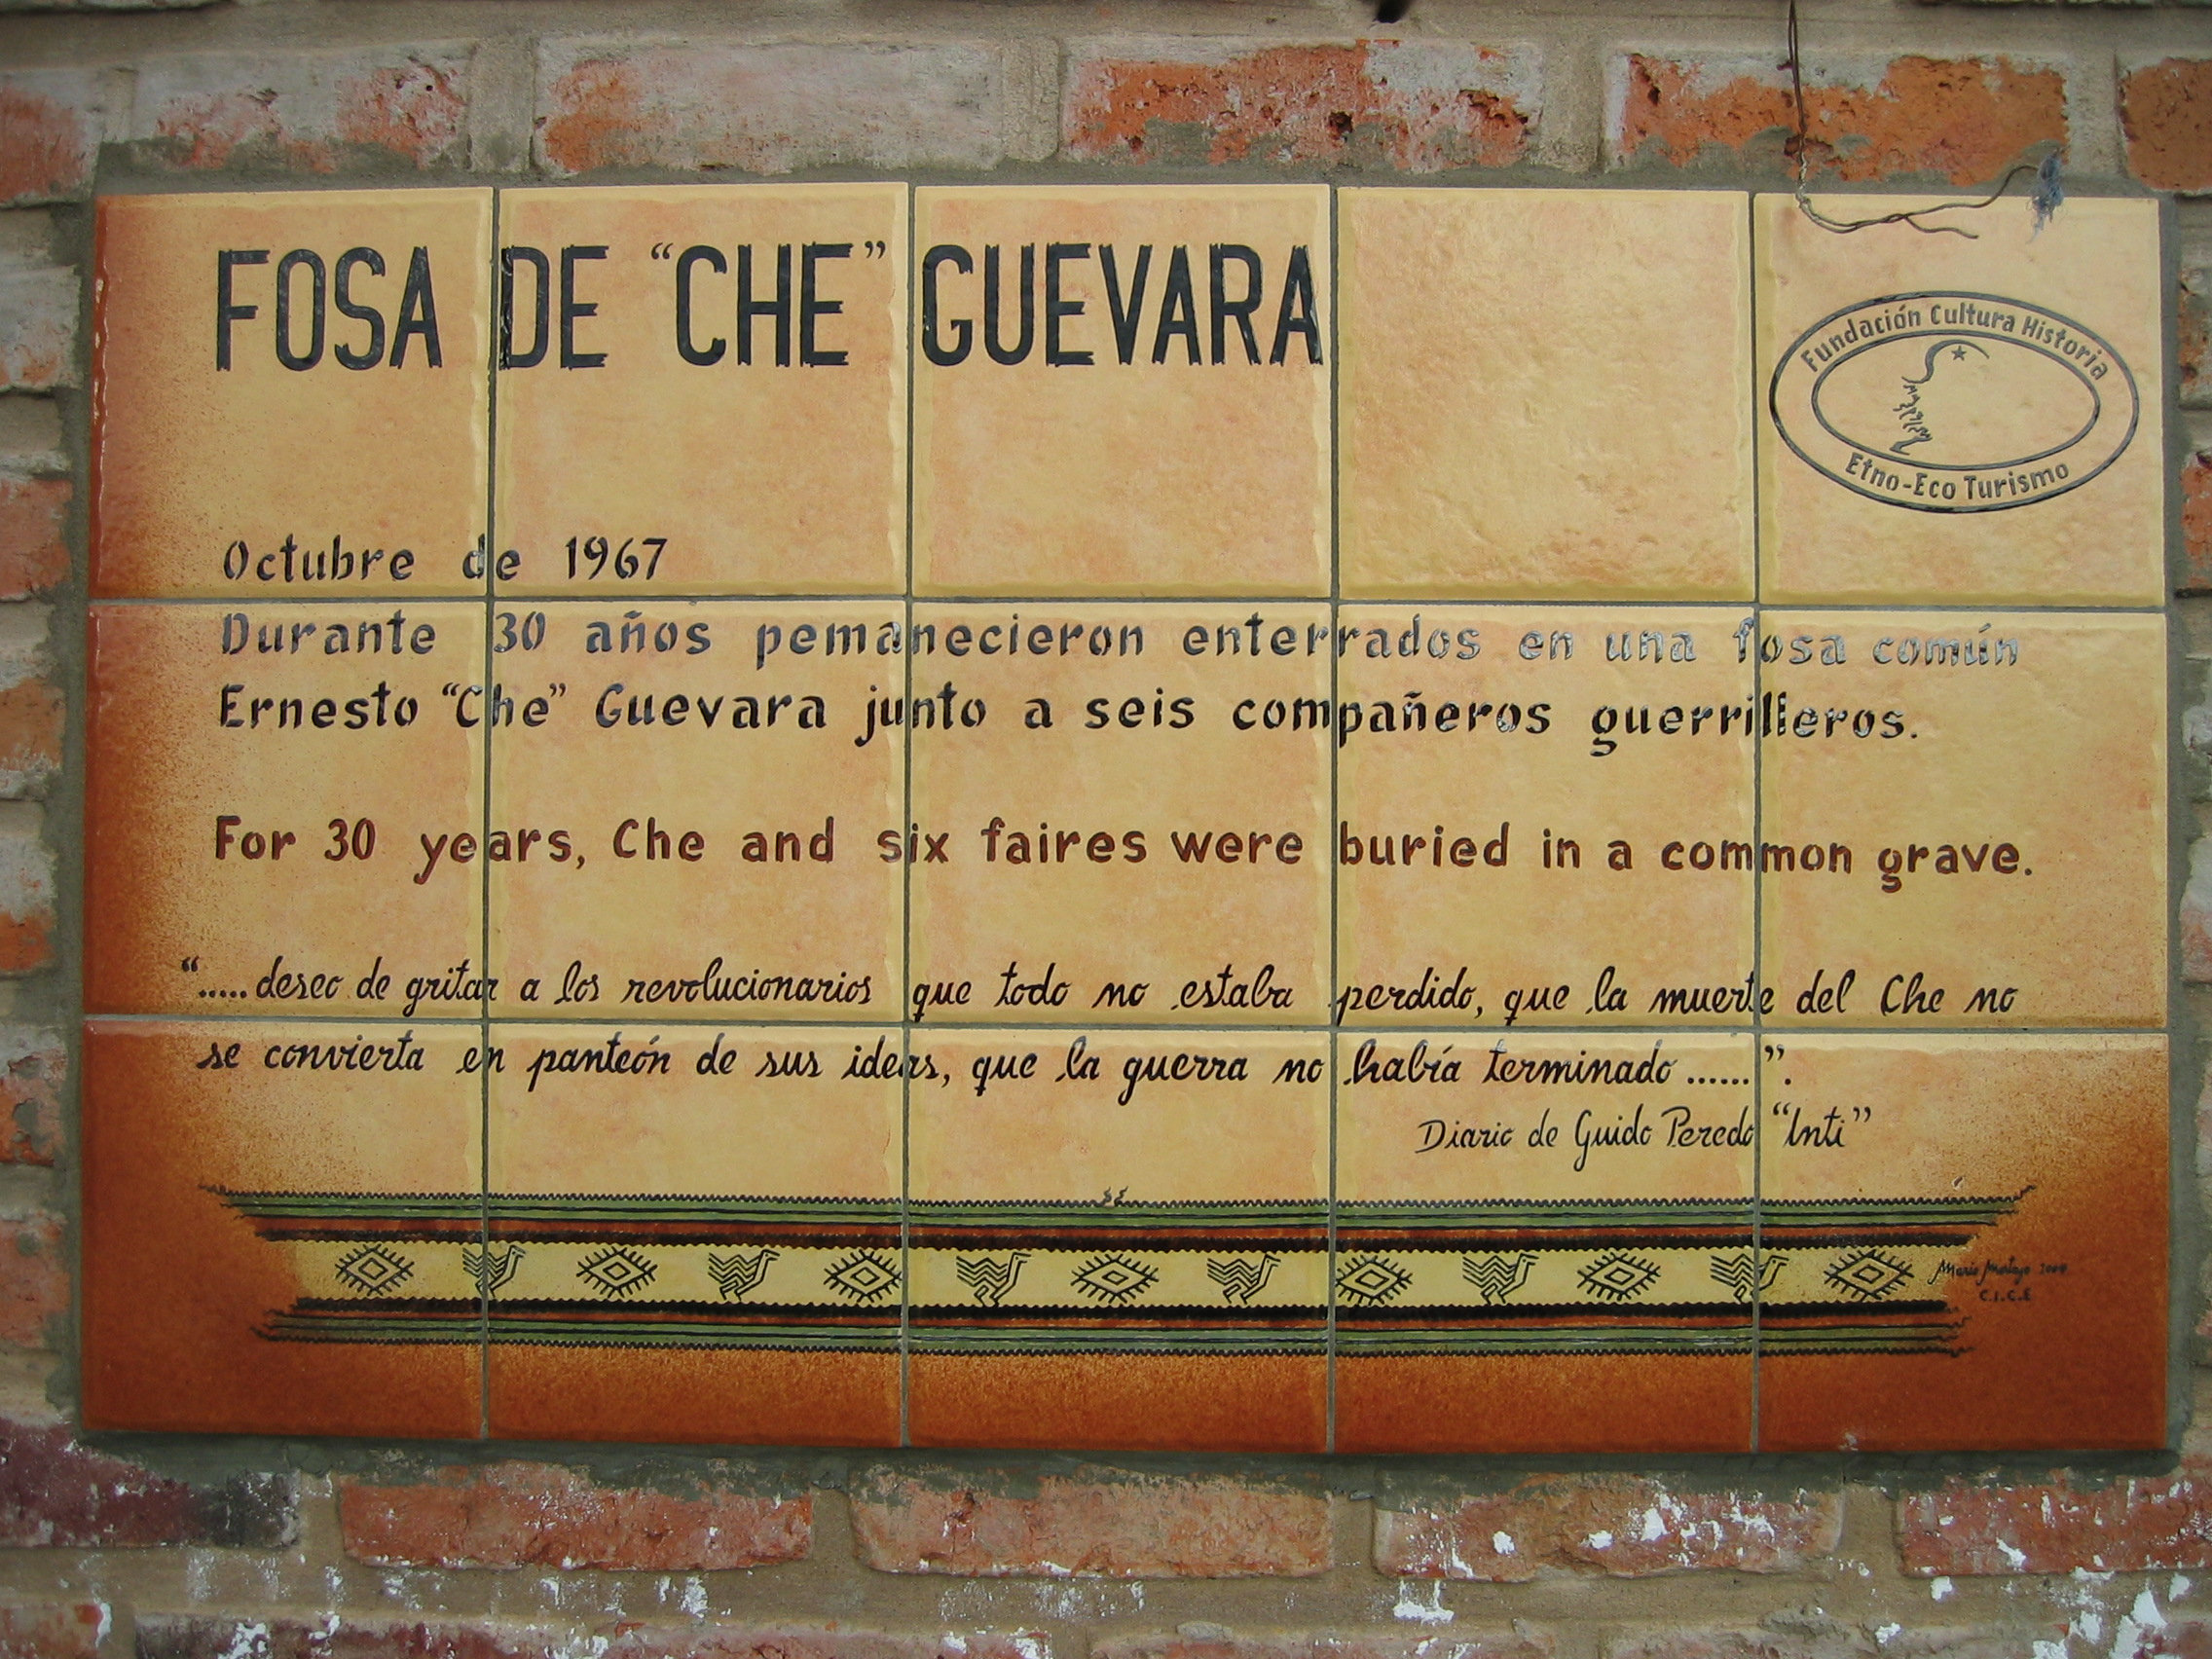 FOSA DE "CHE" GUEVARA
Fundación Cultura Historia
Etno-Eco Turismo
Octubre de 1967
Durante 30 años pemanecieron enterrados en una fosa común
Ernesto "Che" Guevara junto a seis compañeros guerrilleros.
For 30 years, Che and six faires were buried in a common grave.
".....deseo de gritar a los revolucionarios que todo no estaba perdido, que la muerte del Che no
se convierta en panteón de sus ideas, que la guerra no había terminado ......".
Diario de Guido Peredo "Inti"
Mario
C.I.C.E